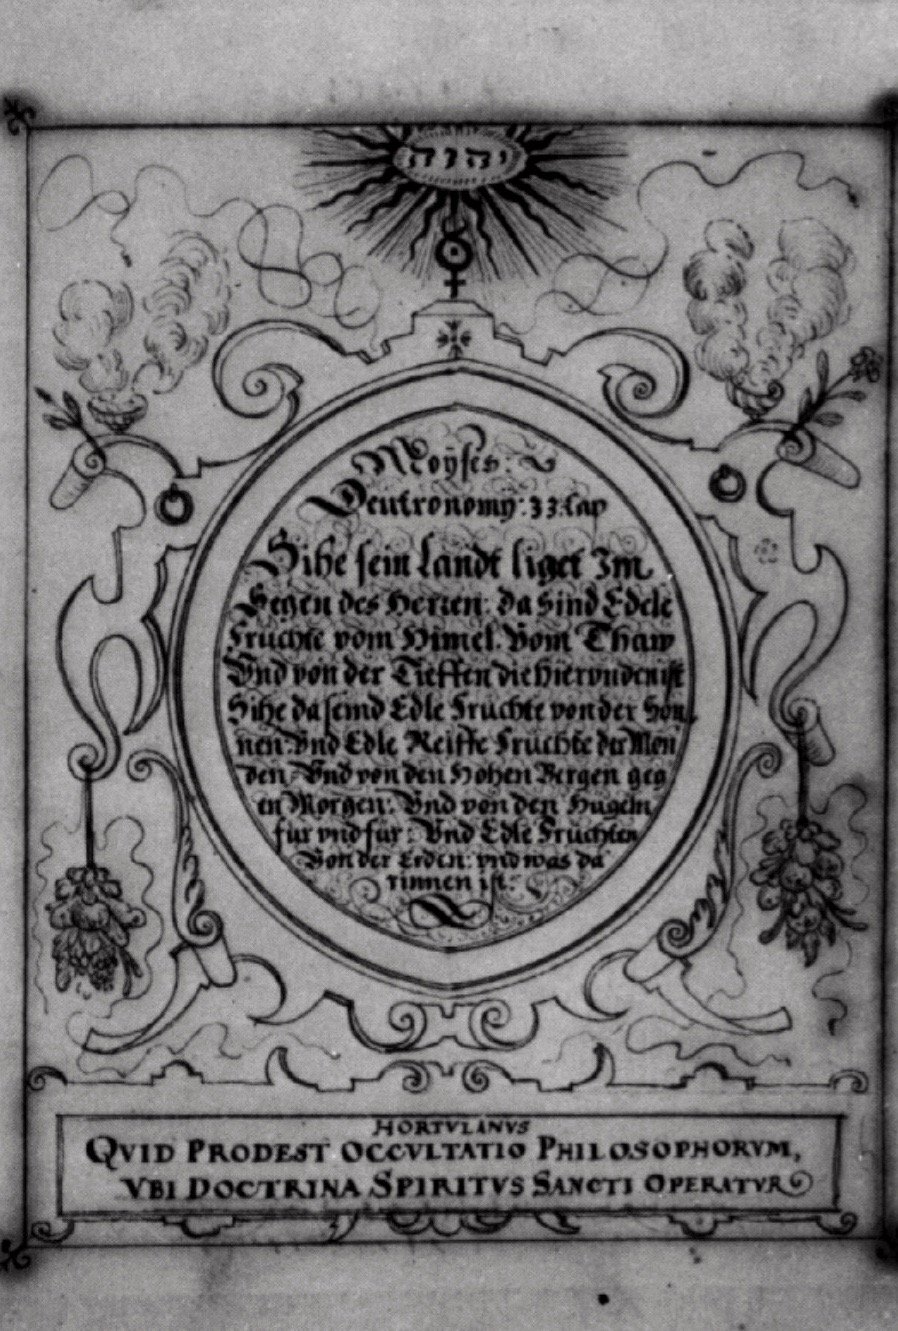 יהוה
Moÿses:
Deutronomÿ: 33: Cap
Sihe sein Landt liget Im
Segen des Herren: da sind Edele
Fruchte vom Himel. Vom Thaw
Vnd von der Tieffen die hiervnden ist
Sihe da seind Edle Fruchte von der Son,
nen: Vnd Edle Reiffe Fruchte der Mon
den: Vnd von den Hohen Bergen geg
en Morgen: Vnd von den Hugeln
fur vnd fur: Vnd Edle Fruchten
Von der Erden: vnd was da
rinnen ist:
HORTVLANVS
QVID PRODEST OCCVLTATIO PHILOSOPHORVM,
VBI DOCTRINA SPIRITVS SANCTI OPERATVR